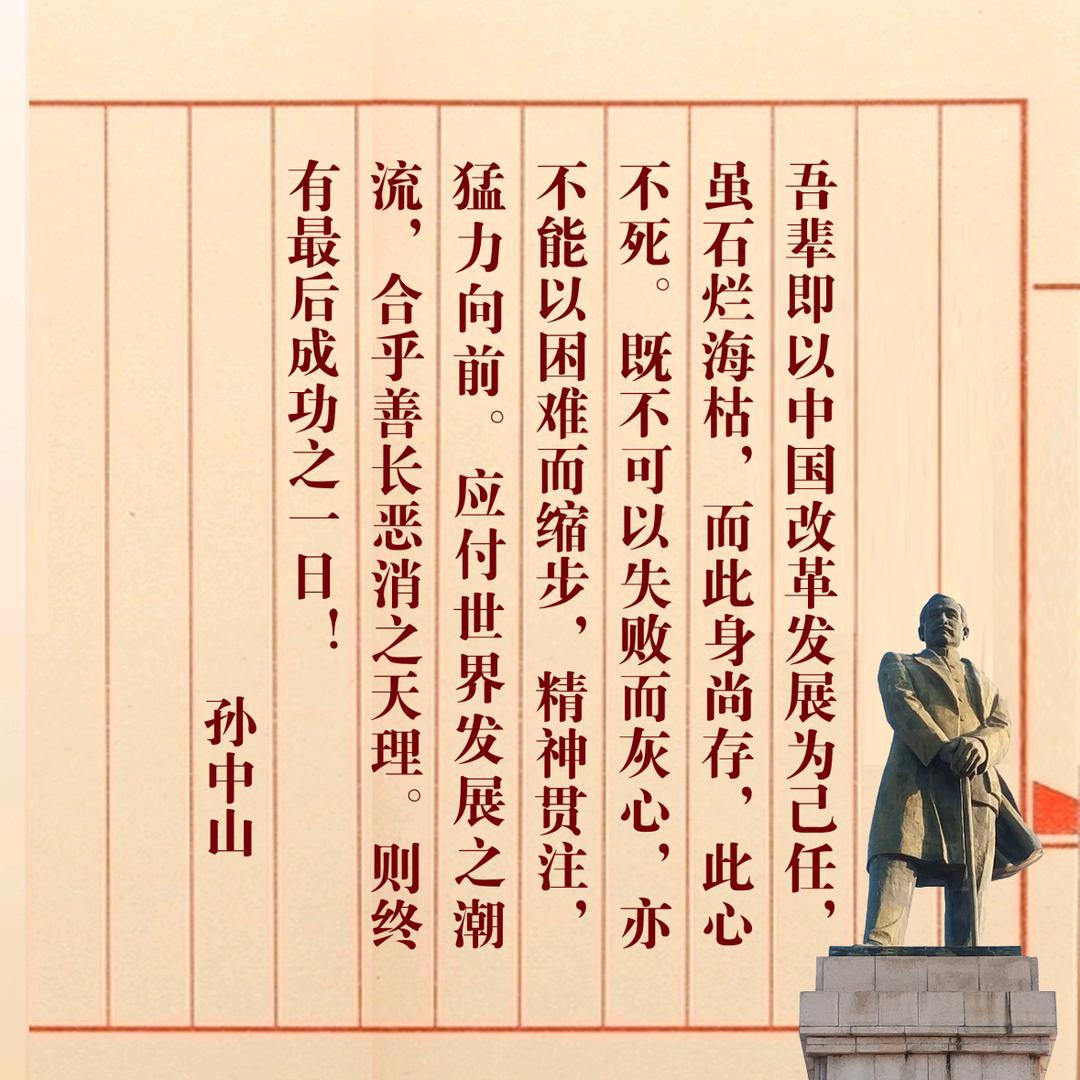 吾辈即以中国改革发展为己任，
虽石烂海枯，而此身尚存，此心
不死。既不可以失败而灰心，亦
不能以困难而缩步，精神贯注，
猛力向前。应付世界发展之潮
流，合乎善长恶消之天理。则终
有最后成功之一日！
孙中山